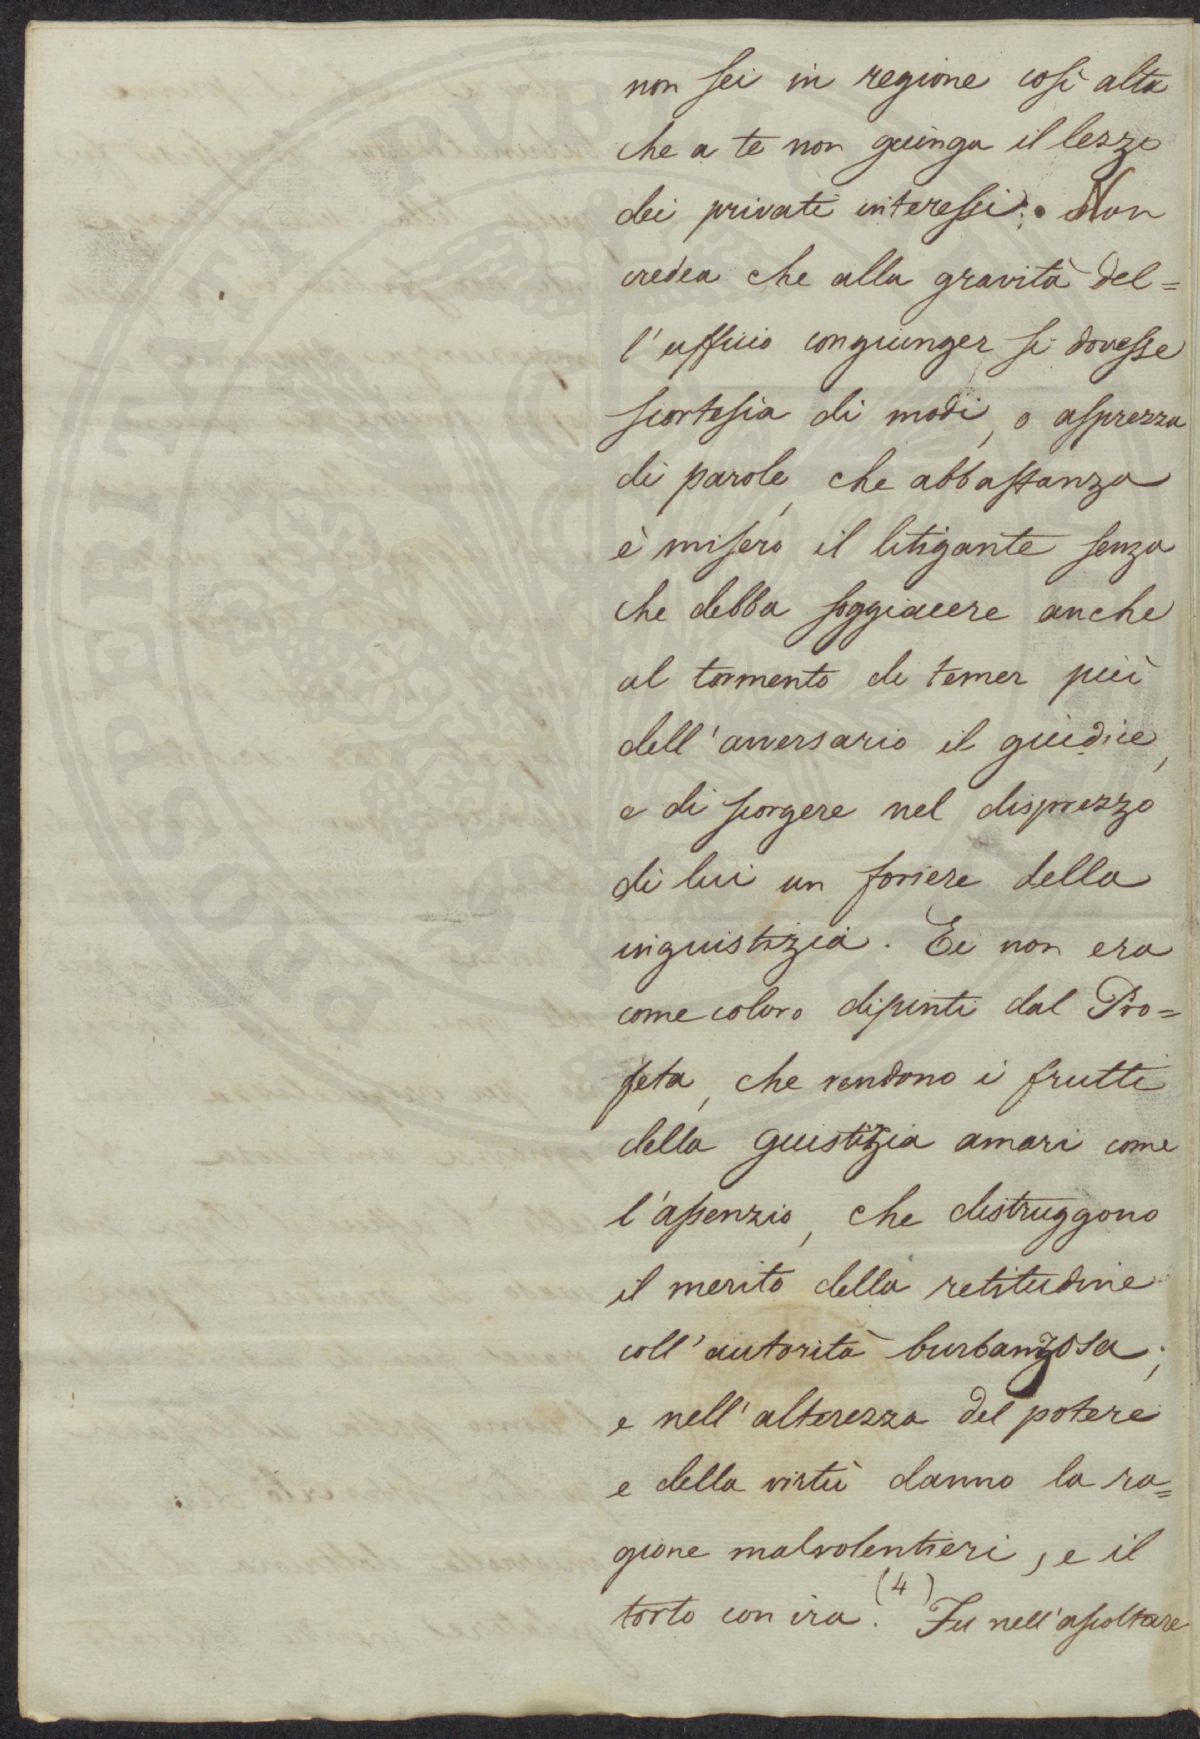 non sei in regione così alta
che a te non giunga il lezzo
dei privati interessi. Non
credea che alla gravità del=
l'ufficio congiunger si dovesse
scortesia di modi, o asprezza
di parole, che abbastanza
è misero il litigante senza
che debba soggiacere anche
al tormento di temer più
dell'avversario il giudice,
e di scorgere nel disprezzo
di lui un foriere della
ingiustizia. Ei non era
come coloro dipinti dal Pro=
feta, che rendono i frutti
della giustizia amari come
l'assenzio, che distruggono
il merito della retitudine
coll'autorità burbanzosa;
e nell'alterezza del potere
e della virtù danno la ra=
gione malvolentieri, e il
torto con ira. (4) Fu nell'ascoltare